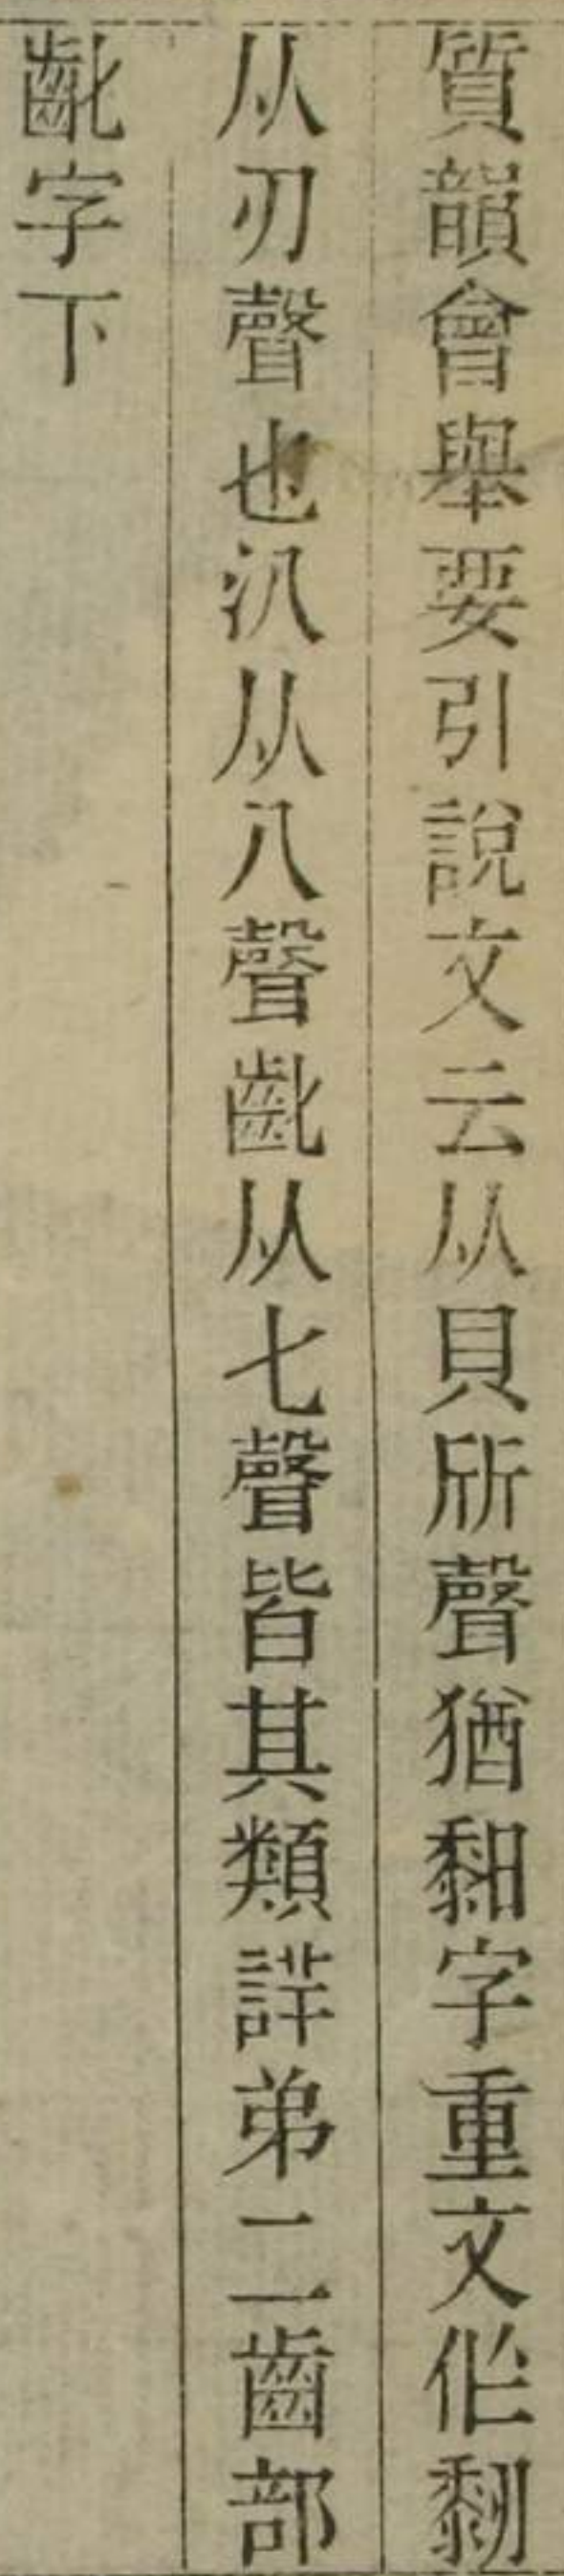 質韻會舉要引說文云从貝斦聲猶䵒字重文作䵑
从刃聲也汃从八聲齔从七聲皆其類詳弟二齒部
齔字下